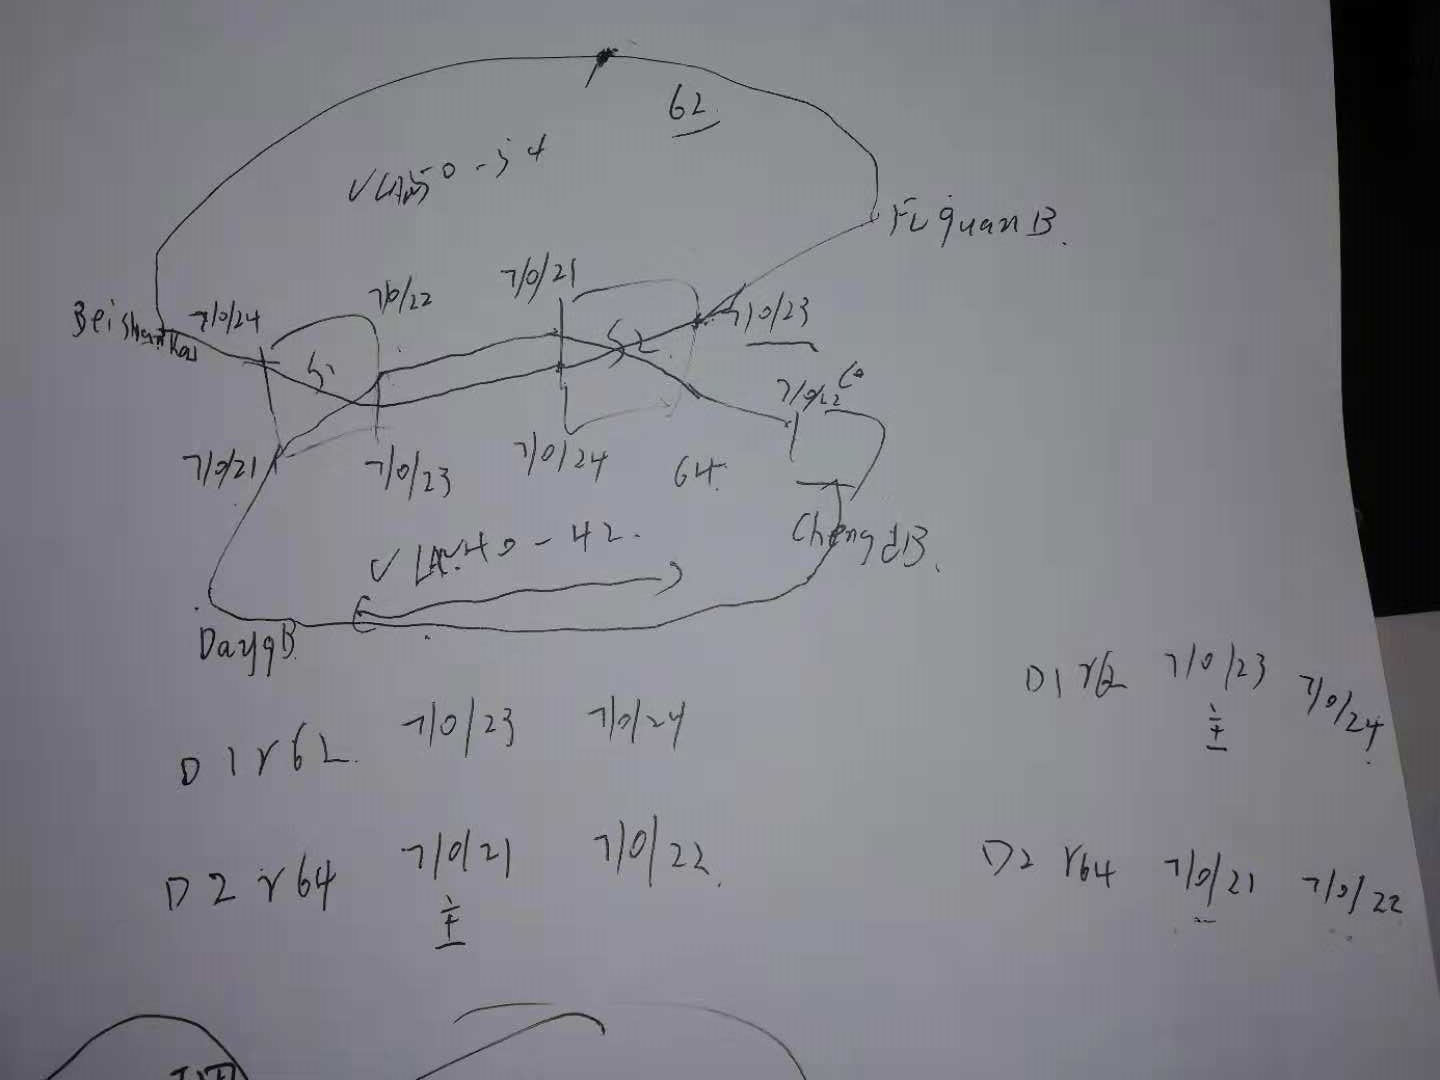 62
VLAN50-54
FuquanB.
7/0/21
7/0/22
7/0/24
7/0/23
S1
S2
7/0/22
7/0/21
7/0/23
7/0/24
64.
ChengdB.
VLAN40-42.
DayqB
D1 r62 7/0/23 7/0/24
主
D1 r62. 7/0/23 7/0/24
D2 r64 7/0/21 7/0/22.
主
D2 r64 7/0/21 7/0/22